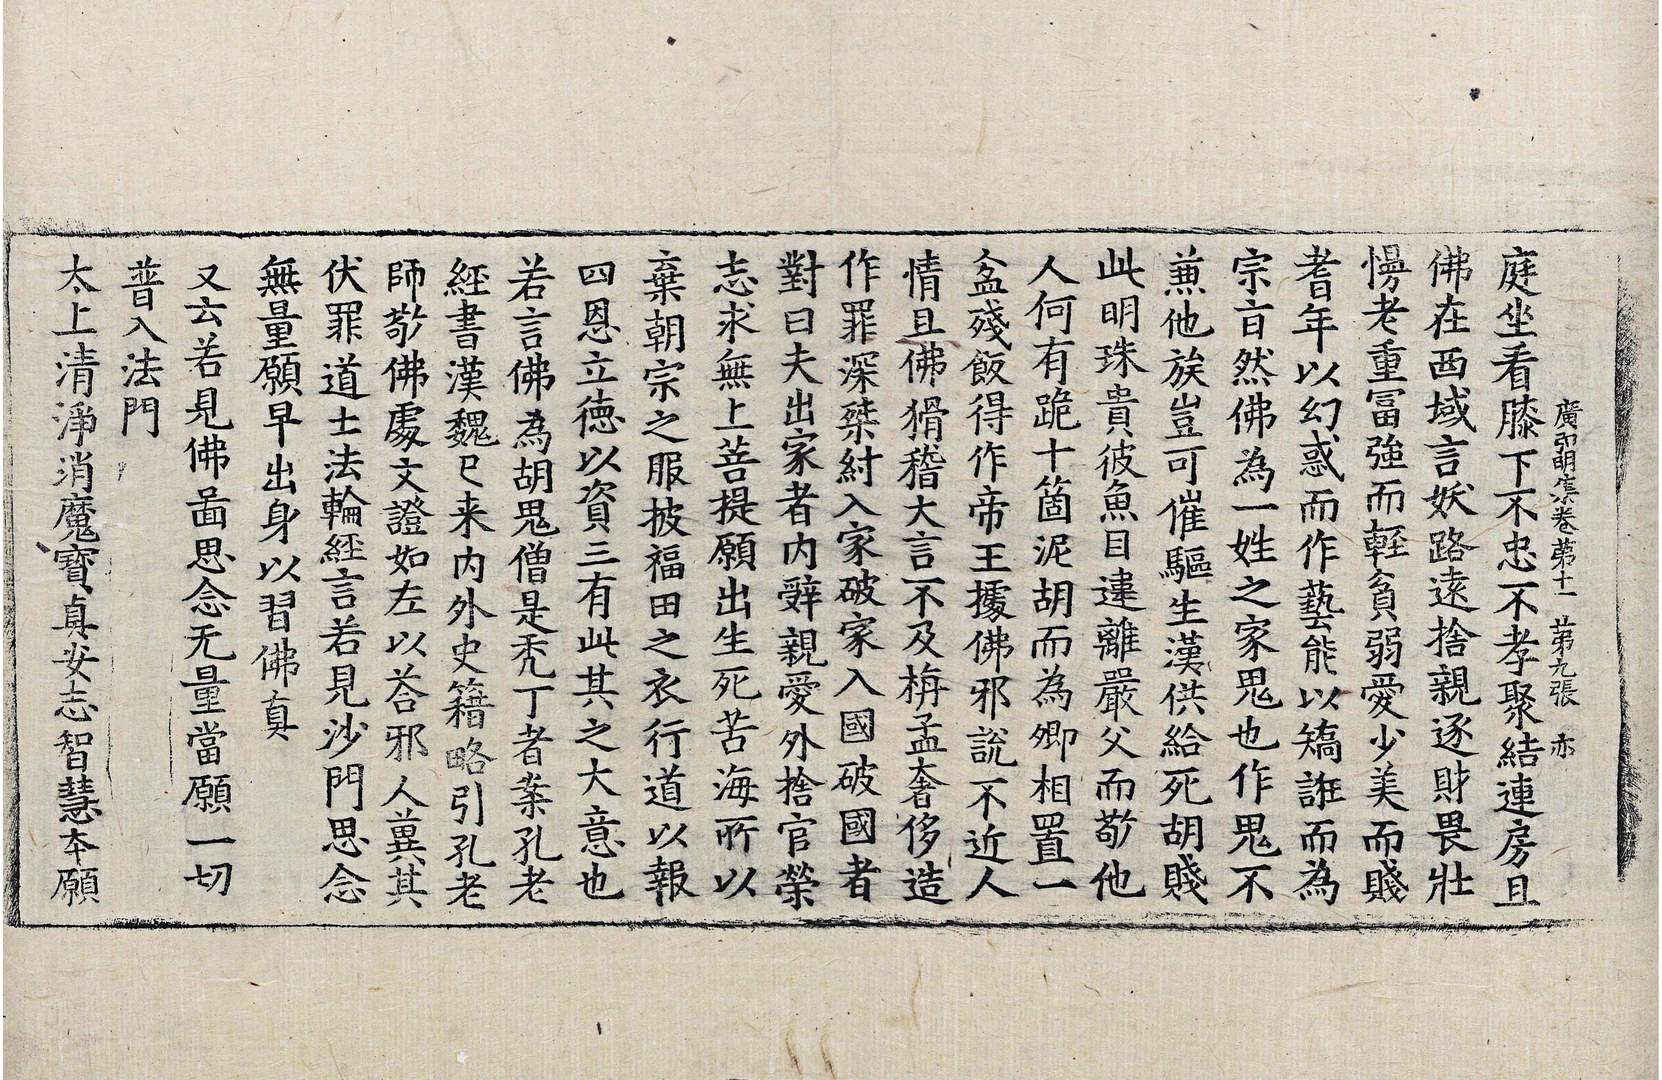 廣弘明集卷第十一 第九張 亦
庭坐看膝下不忠不孝聚結連房且
佛在西域言妖路遠捨親逐財畏壯
慢老重冨強而輕貧弱愛少美而賤
耆年以幻惑而作藝能以矯誑而為
宗旨然佛為一姓之家鬼也作鬼不
兼他族豈可催驅生漢供給死胡賤
此明珠貴彼魚目違離嚴父而敬他
人何有跪十箇泥胡而為卿相置一
盆殘飯得作帝王據佛邪說不近人
情且佛猾稽大言不及栴孟奢侈造
作罪深桀紂入家破家入國破國者
對曰夫出家者內辤親愛外捨官榮
志求無上菩提願出生死苦海所以
棄朝宗之服披福田之衣行道以報
四恩立德以資三有此其之大意也
若言佛為胡鬼僧是禿丁者案孔老
經書漢魏已来內外史籍略引孔老
師敬佛處文證如左以荅邪人冀其
伏罪道士法輪經言若見沙門思念
無量願早出身以習佛真
又云若見佛啚思念无量當願一切
普入法門
太上清淨消魔寶真安志智慧本願